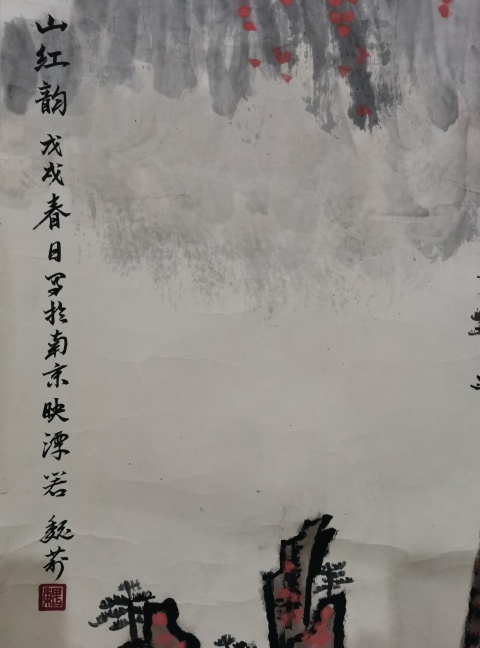 山红韵戊戌春日写于南京映潭岩魏莉